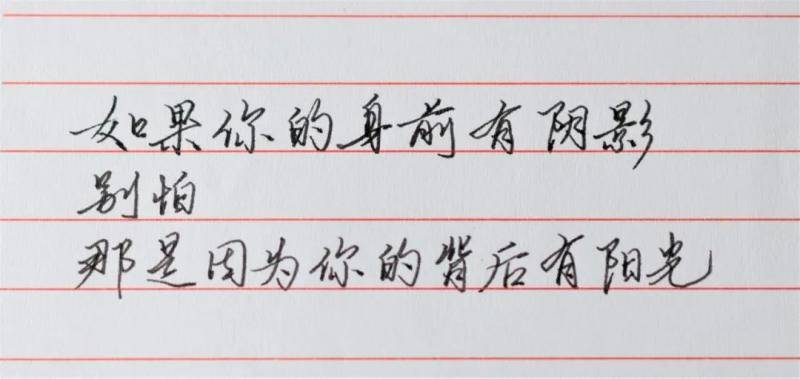 如果你的身前有阴影
别怕
那是因为你的背后有阳光